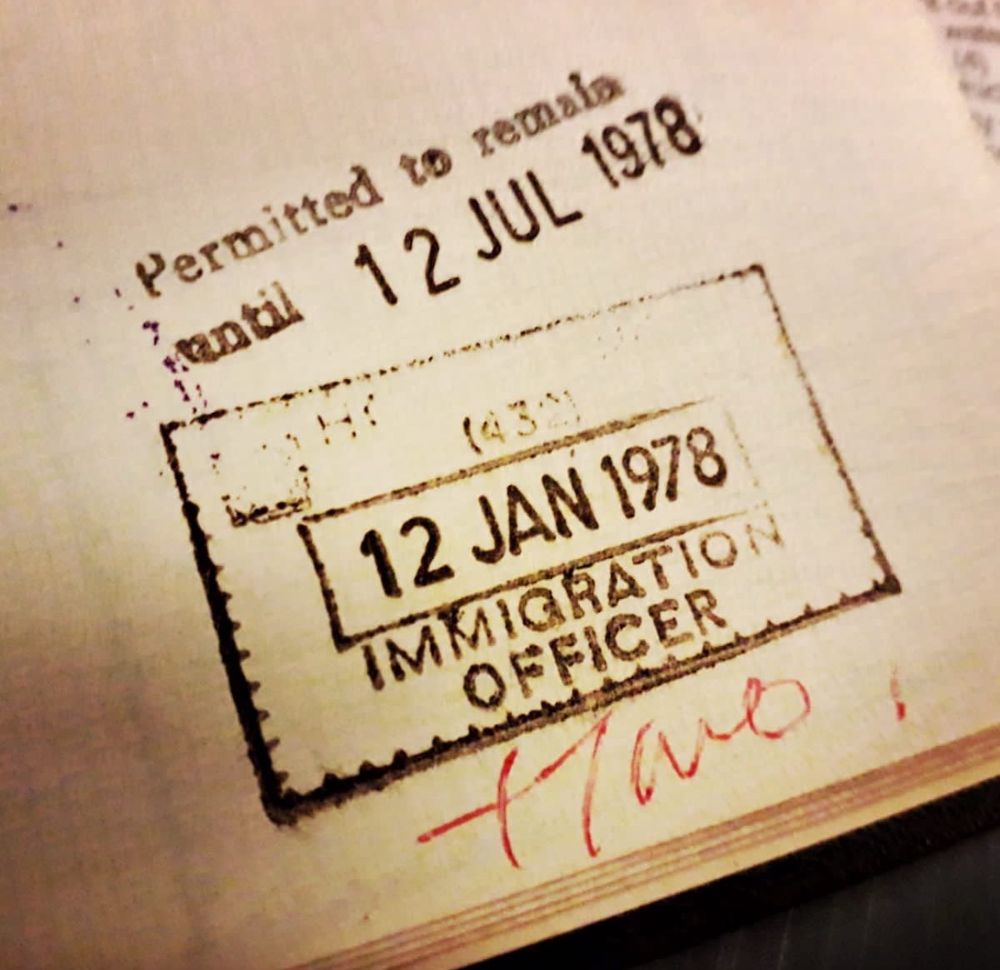 Permitted to remain
until 12 JUL 1978
(432)
12 JAN 1978
IMMIGRATION
OFFICER